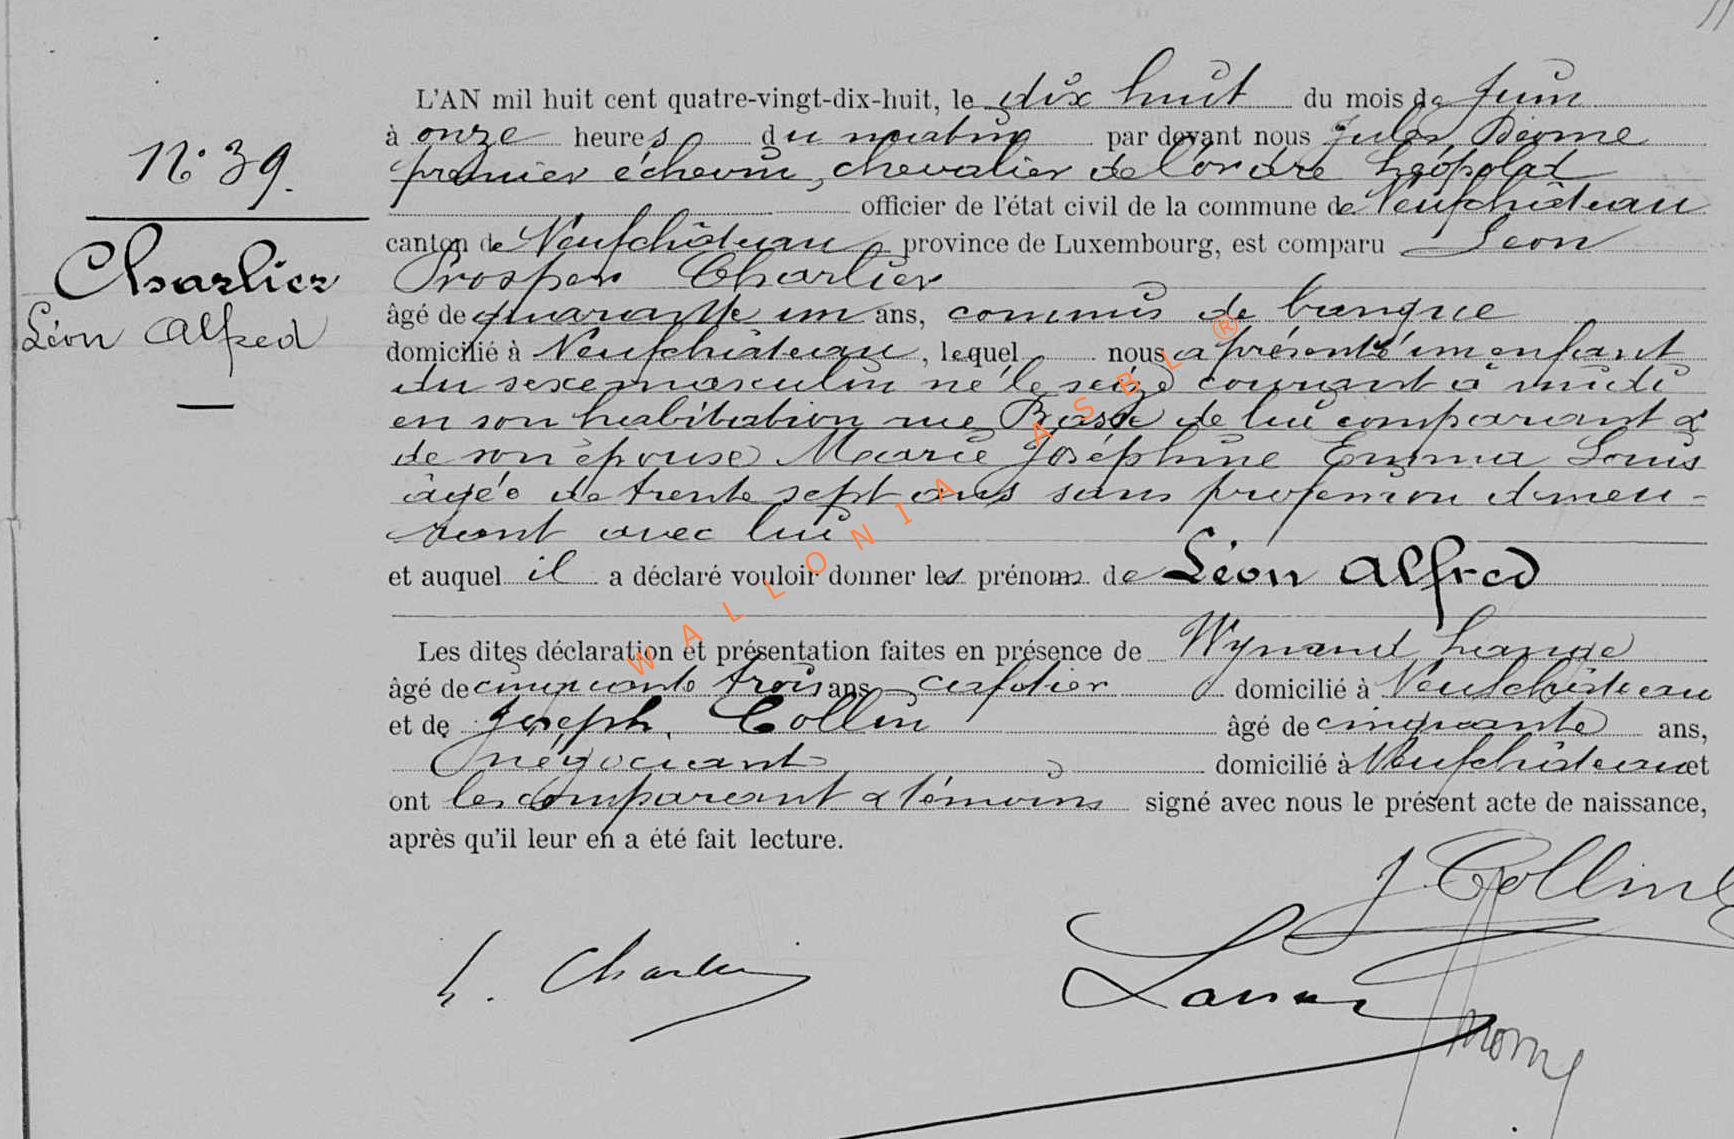 L'AN mil huit cent quatre-vingt-dix-huit, le dix huit du mois de Juin
à onze heures du matin par devant nous Jules
N° 39.
premier échevin, chevalier de l'ordre Léopold
officier de l'état civil de la commune de Neufchâteau
canton de Neufchâteau province de Luxembourg, est comparu Léon
Charlier
Prosper Charlier
Léon Alfred
âgé de quarante un ans, commis de banque
domicilié à Neufchâteau, lequel nous a présenté un enfant
du sexe masculin né le seize courant à midi
en son habitation rue Basse de lui comparant &
de son épouse Marie Joséphine Emma Louis
âgée de trente sept ans sans profession demeu-
rant avec lui
et auquel il a déclaré vouloir donner les prénoms de Léon Alfred
Les dites déclaration et présentation faites en présence de Wynand Lange
âgé de cinquante trois ans cafetier domicilié à Neufchâteau
et de Joseph Collin âgé de cinquante ans,
négociant domicilié à Neufchâteau et
ont les comparant & témoins signé avec nous le présent acte de naissance,
après qu'il leur en a été fait lecture.
J Collin
L. Charlier
WALLONIA ASBL ®